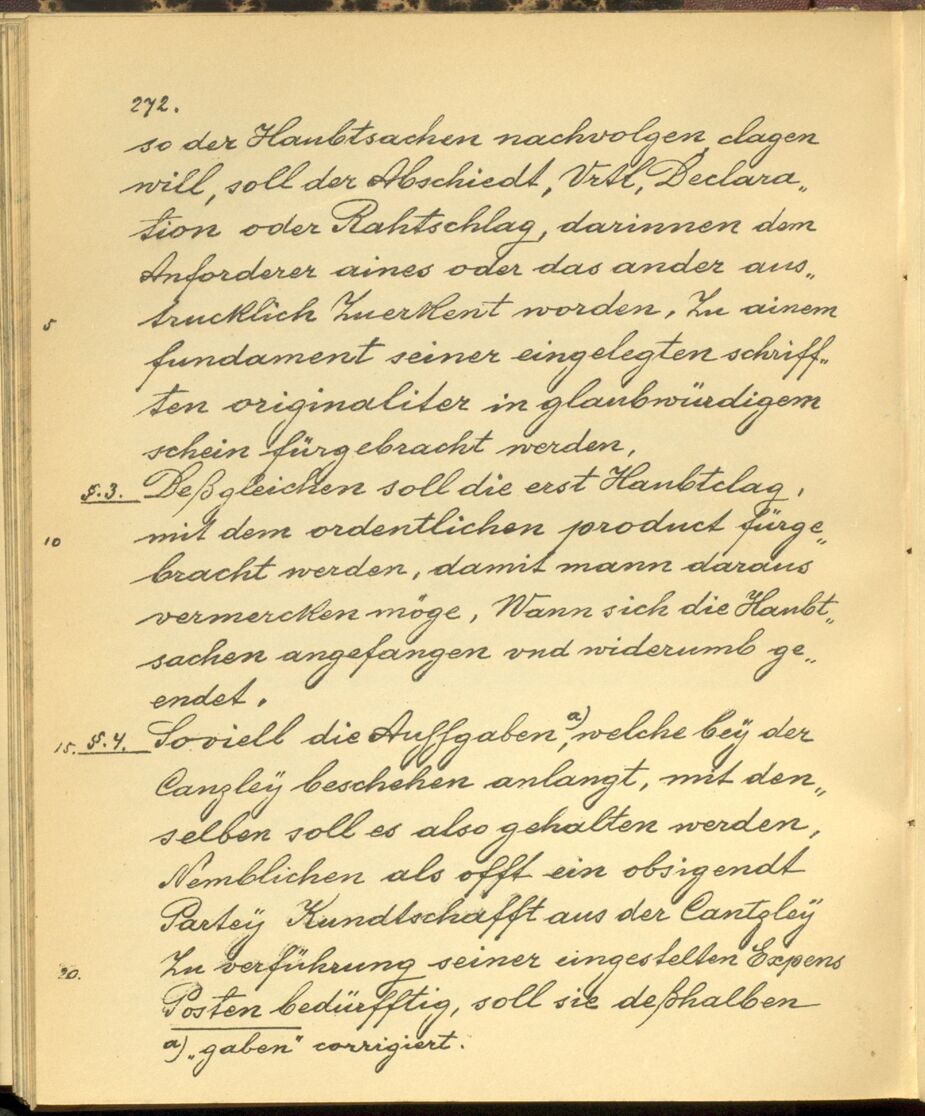 272.
so der Haubtsachen nachvolgen, clagen
will, soll der Abschiedt, Vrtl, Declara„
tion oder Rahtschlag, darinnen dem
Anforderer aines oder das ander aus„
5 trucklich Zuerkent worden, Zu ainem
fundament seiner eingelegten schriff„
ten originaliter in glaubwürdigem
schein fürgebracht werden,
§.3. Deßgleichen soll die erst Haubtclag,
10 mit dem ordentlichen product fürge„
bracht werden, damit mann daraus
vermercken möge, Wann sich die Haubt„
sachen angefangen vnd widerumb ge„
endet.
15. §.4. Soviell die Auffgaben a), welche beÿ der
Canzleÿ beschehen anlangt, mit den„
selben soll es also gehalten werden,
Nemblichen als offt ein obsigendt
Parteÿ Kundtschafft aus der Cantzleÿ
20. Zu verführung seiner eingestelten Expens
Posten bedürfftig, soll sie deßhalben
a) „gaben“ corrigiert.